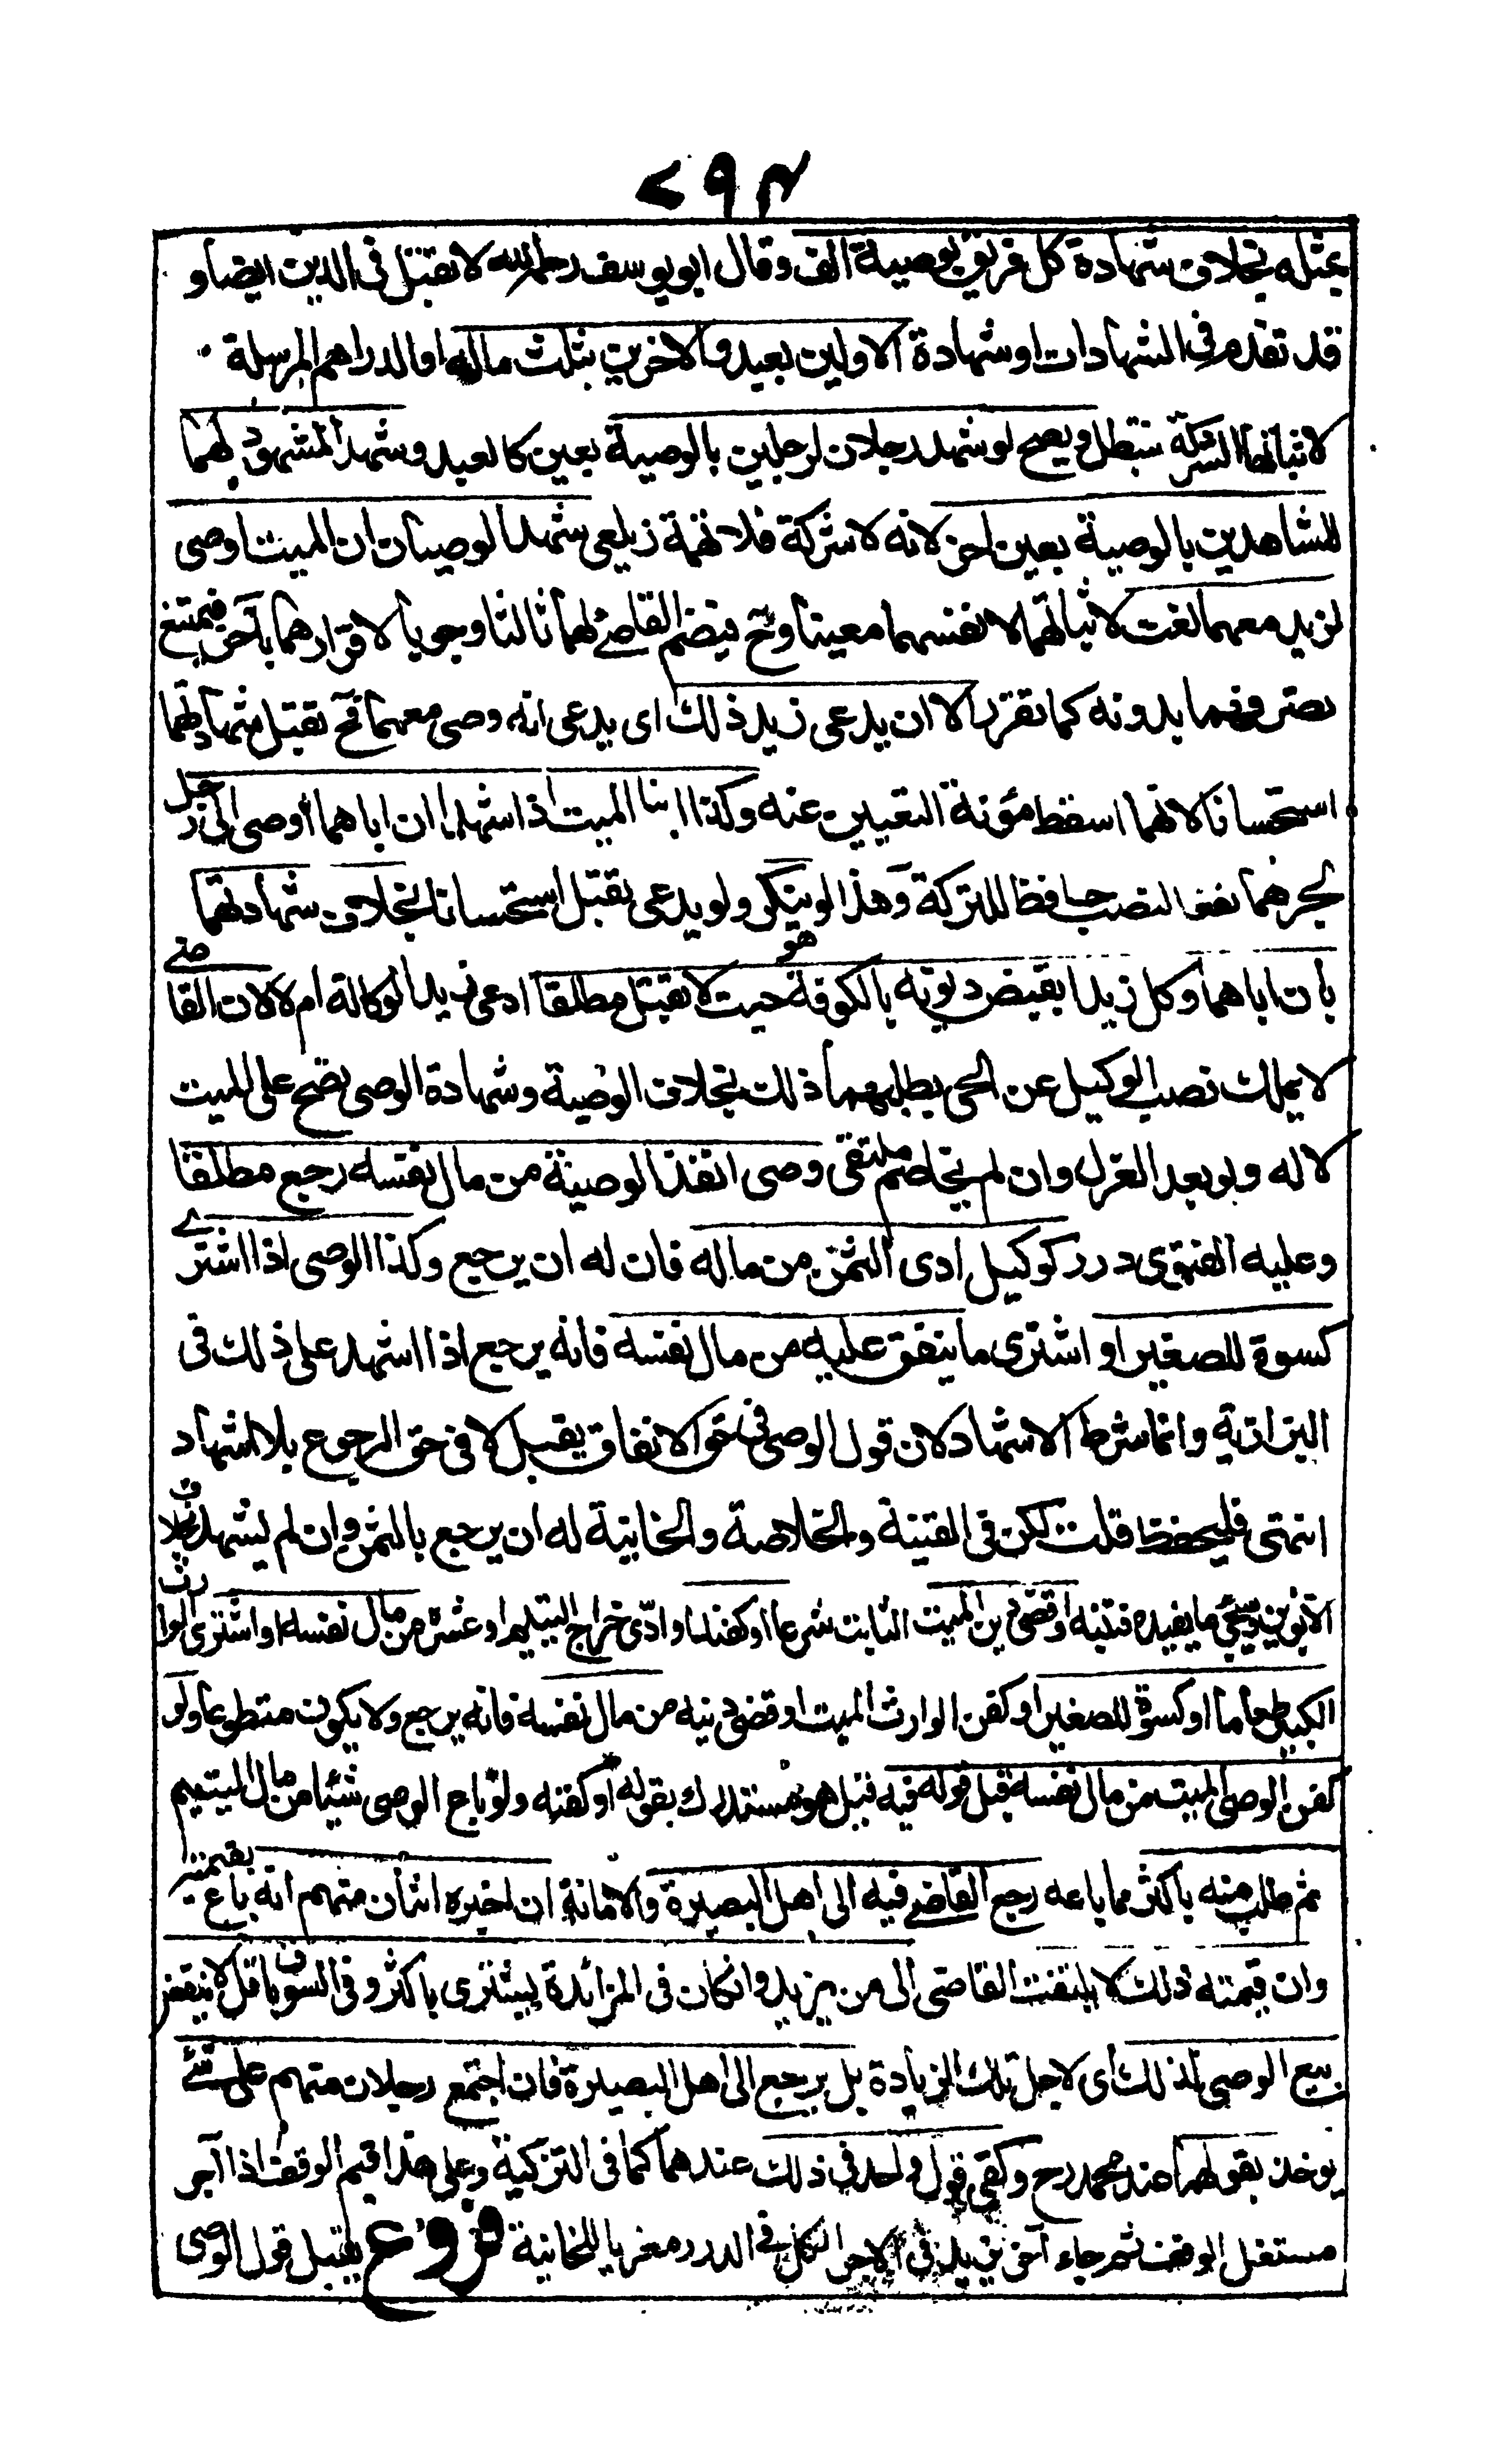 ٢٩٤
بمثله بخلاف شهادة كل فريق بوصية الف وقال ابو يوسف رحمه الله لا تقبل فى الدين ايضا و
قد تقدم فى الشهادات او شهادة الاولين بعبد والاخرين بثلث ماله او الدراهم المرسلة
لاثباتها الشركة فتبطل ويصح لو شهد رجلان لرجلين بالوصية بعين كالعبد وشهد المشهود لهما
للشاهدين بالوصية بعين اخر لانه لا شركة فلا تهمة زيلعى شهد الوصيان ان الميت اوصى
لزيد معهما لغت لاثباتهما لانفسهما معينا وح فيضم القاضى لهما ثالثا وجوبا لاقرارهما بآخر فيمتنع
تصرفهما بدونه كما تقرر الا ان يدعى زيد ذلك اى يدعى انه وصى معهما فح تقبل شهادتهما
استحسانا لانهما اسقطا مؤنة التعيين عنه وكذا ابنا الميت اذا شهدا ان اباهما اوصى الى رجل
لجرهما نفعا لنصب حافظ للتركة وهذا لو ينكر ولو يدعى تقبل استحسانا بخلاف شهادتهما
بان اباهما وكل زيدا بقبض ديونه بالكوفة حيث لا تقبل مطلقا ادعى زيد الوكالة ام لا لان القاضى
لا يملك نصب الوكيل عن الحى بطلبهما ذلك بخلاف الوصية وشهادة الوصى تصح على الميت
لا له ولو بعد العزل وان لم يخاصم ملتقى وصى انفذ الوصية من مال نفسه رجع مطلقا
وعليه الفتوى درر كوكيل ادى الثمن من ماله فان له ان يرجع وكذا الوصى اذا اشترى
كسوة للصغير او اشترى ما ينفق عليه من مال نفسه فانه يرجع اذا اشهد على ذلك فى
البزازية وانما شرط الاشهاد لان قول الوصى فى حق الانفاق يقبل لا فى حق الرجوع بلا اشهاد
انتهى فليحفظ قلت لكن فى القنية والخلاصة والخانية له ان يرجع بالثمن وان لم يشهد بخلاف
الابوين وسيجئ ما يفيده فتنبه او قضى دين الميت الثابت شرعا او كفنه او ادى خراج اليتيم او عشره من مال نفسه او اشترى الوارث
الكبير طعاما او كسوة للصغير او كفن الوارث الميت او قضى دينه من مال نفسه فانه يرجع ولا يكون متطوعا ولو
كفن الوصى الميت من مال نفسه قبل قوله فيه قيل هو مستدرك بقوله او كفنه ولو باع الوصى شيئا من مال اليتيم
ثم طلب منه باكثر مما باعه رجع القاضى فيه الى اهل البصيرة والامانة ان اخبره اثنان منهم انه باع بقيمته
وان قيمته ذلك لا يلتفت القاضى الى من يزيد وان كان فى المزايدة يشترى باكثر وفى السوق باقل لا ينتقض
بيع الوصى لذلك اى لاجل تلك الزيادة بل يرجع الى اهل البصيرة فان اجتمع رجلان منهم على شئ
يوخذ بقولهما عند محمد رح وكفى قول واحد فى ذلك عندهما كما فى التزكية وعلى هذا قيم الوقف اذا آجر
مستغل الوقف ثم جاء آخر يزيد فى الاجر الكل فى الدرر معزيا للخانية فروع يقبل قول الوصى